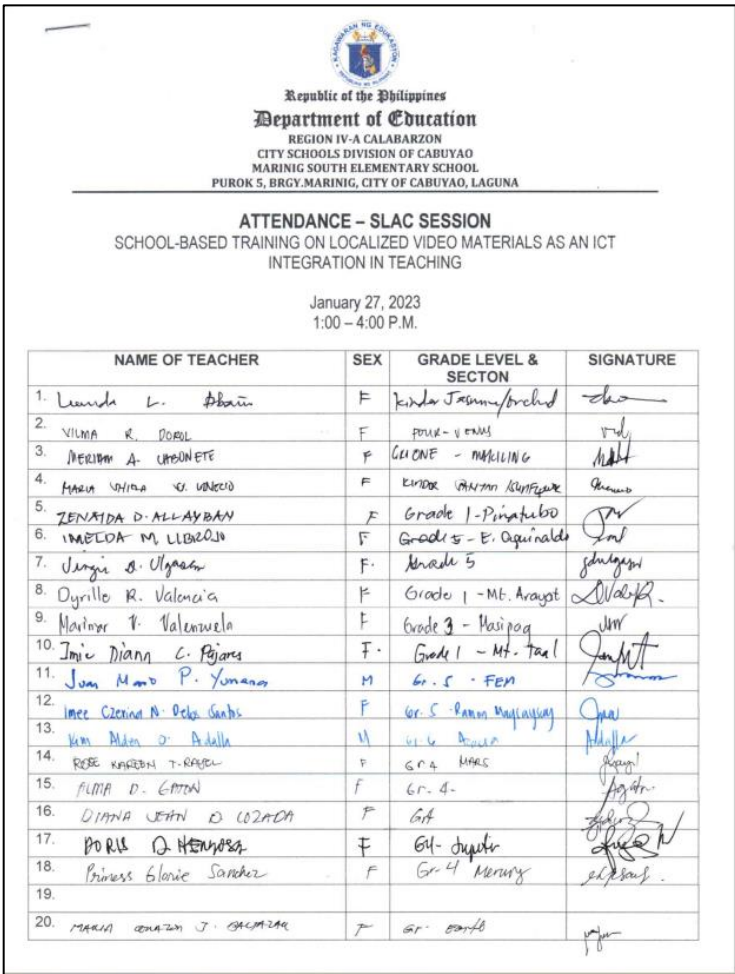 KAGAWARAN NG EDUKASYON
REPUBLIKA NG PILIPINAS
Republic of the Philippines
Department of Education
REGION IV-A CALABARZON
CITY SCHOOLS DIVISION OF CABUYAO
MARINIG SOUTH ELEMENTARY SCHOOL
PUROK 5, BRGY.MARINIG, CITY OF CABUYAO, LAGUNA
ATTENDANCE – SLAC SESSION
SCHOOL-BASED TRAINING ON LOCALIZED VIDEO MATERIALS AS AN ICT
INTEGRATION IN TEACHING
January 27, 2023
1:00 – 4:00 P.M.
NAME OF TEACHER SEX GRADE LEVEL & SECTON SIGNATURE
1. L. F Kinder
2. VILMA R. DOROL F FOUR - VENUS
3. MERIAM A. F GR ONE - MAKILING
4. MARIA F KINDER
5. ZENAIDA D. ALLAYBAN F Grade 1 - Pinatubo
6. IMELDA M. LIBROJO F Grade 5 - E. Aguinaldo
7. F. Grade 5
8. Dyrille R. Valencia F Grade 1 - Mt. Arayat
9. Marimar V. Valenzuela F Grade 3 - Masipag
10. Imie Diann C. Pajares F. Grade 1 - Mt. Taal
11. P. M Gr. 5 - FEM
12. Imee Czerina N. Delos Santos F Gr. 5 - Ramon Magsaysay
13. Kim Alden O. Adalla M Gr. 6 Adalla
14. ROSE KAREEN T. F Gr 4 MARS
15. ALMA D. GATON F Gr. 4-
16. DIANA JEAN D LOZADA F G4
17. DORIS D. F G4- Jupiter
18. Princess Glorie Sanchez F Gr-4 Mercury
19.
20. MARIA J. F Gr- Earth